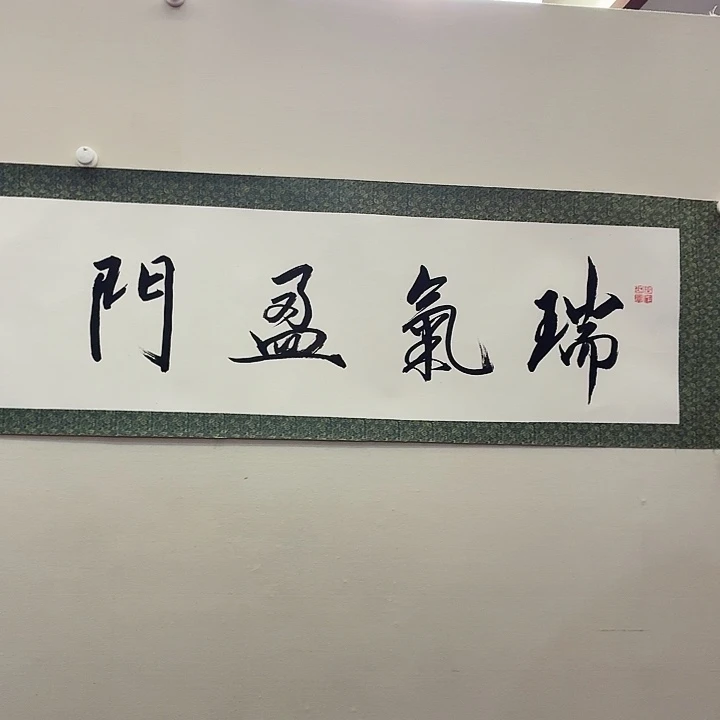 瑞氣盈門